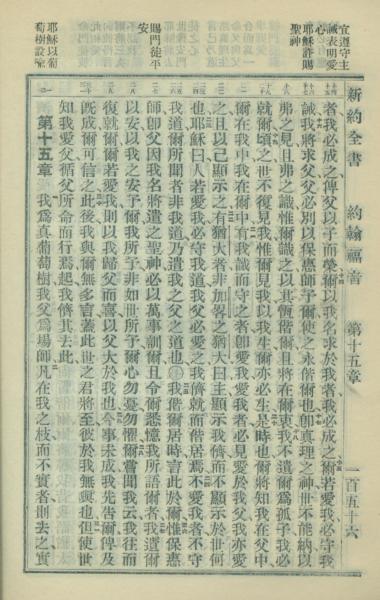 新約全書 約翰福音 第十五章 一百五十六
宜遵守主
誡表明愛
心
耶穌許賜
聖神
者我必成之俾父以子而榮爾以我名求於我者我必成之爾若愛我必守我
誡我將求父父必別以保惠師予爾使之永偕爾也卽眞理之神世不能納以
弗之見且弗之識惟爾識之以其恆偕爾且將在爾衷我不遺爾爲孤子我必
就爾頃之世不復見我惟爾見我以我生爾亦必生是時也爾將知我在父中
爾在我中我在爾中有我誡而守之者卽愛我愛我者必見愛於我父我亦愛
之且以己顯示之有猶大者非加畧之猶大曰主顯示我儕而不顯示於世何
也耶穌曰人若愛我必守我道我父必愛之我儕就而偕居焉不愛我者不守
賜門徒平
安
我道爾所聞者非我道乃遣我之父之道也〇我偕爾居時言此於爾惟保惠
師卽父因我名將遣之聖神必以萬事訓爾且令爾悉憶我所語爾者我遺爾
以安以我之安予爾我所予非如世所予爾心勿憂勿懼爾嘗聞我云我往而
復就爾爾若愛我則以我歸父而喜以父大於我也今事未成我先告爾俾及
旣成爾可信之此後我與爾無多言蓋此世之君將至彼於我無與也但使世
知我愛父循父所命而行焉起我儕其去此
耶穌以葡
萄樹設喩
第十五章 我爲眞葡萄樹我父爲場師凡在我之枝而不實者則去之實